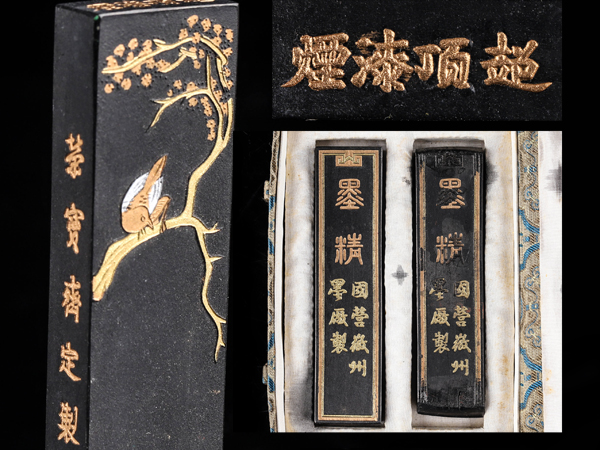 榮寶齋定製
超頂漆煙
墨精
國營徽州
墨廠製
墨精
國營徽州
墨廠製